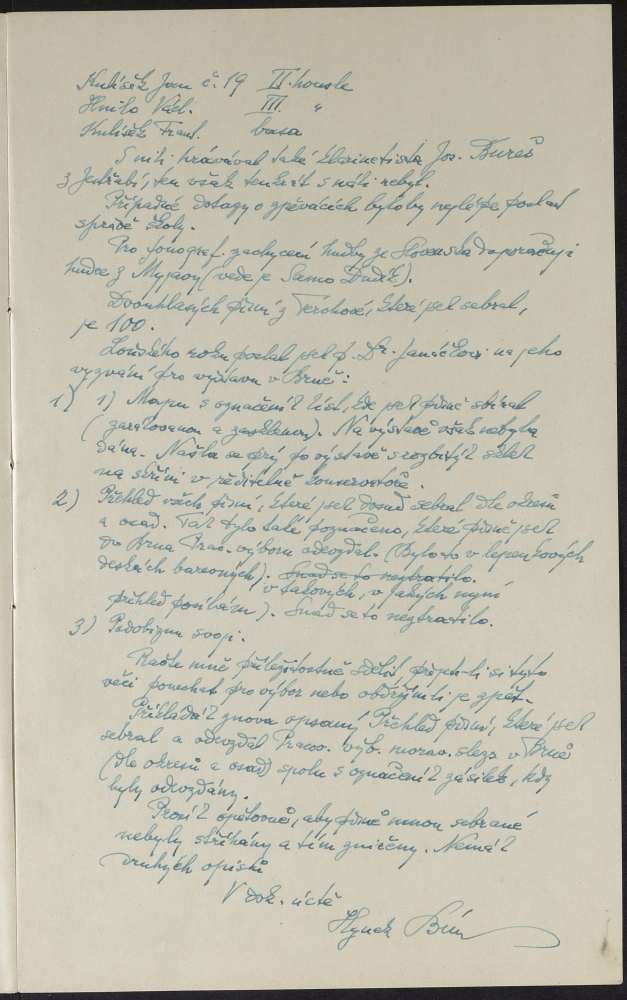 Kubíšek Jan č. 19 II. housle
Hnilo Václ. III. "
Kubíšek Frant. basa
S nimi hrávával také klarinetista Jos. Bureš
z Jestřabí, ten však tenkrát s nimi nebyl.
Případné dotazy o zpěvácích bylo by nejlépe poslat
správě školy.
Pro fonograf. zachycení hudby ze Slovenska doporučuji
hudce z Myjavy (vede je Samo Dudík).
Dvouhlasých písní z Terchové, které jsem sebral,
je 100.
Loňského roku poslal jsem p. Dr. Janáčkovi na jeho
vyzvání pro výstavu v Brně:
1) 1) Mapu s označením míst, kde jsem písně sbíral
(zarámovanou a zasklenou). Na výstavě však nebyla
dána. Našla se prý po výstavě s rozbitým sklem
na skříni v ředitelně konservatoře.
2) Přehled všech písní, které jsem dosud sebral dle okresů
a osad. Tam bylo také poznačeno, které písně jsem
do Brna Prac. výboru odevzdal. (Bylo to v lepenkových
deskách barevných). Snad se to neztratilo.
v takových, v jakých nyní
přehled posílám). Snad se to neztratilo.
3) Podobiznu svoji.
Račte mně příležitostně sdělit, přejete-li si tyto
věci ponechat pro výbor nebo obdržím-li je zpět.
Přikládám znova opsaný Přehled písní, které jsem
sebral a odevzdal Pracov. výb. morav. slezs. v Brně
(dle okresů a osad) spolu s označením zásilek, kdy
byly odevzdány.
Prosím opětovně, aby písně mnou sebrané
nebyly stříhány a tím zničeny. Nemám
druhých opisů
V dok. úctě
Hynek Bím